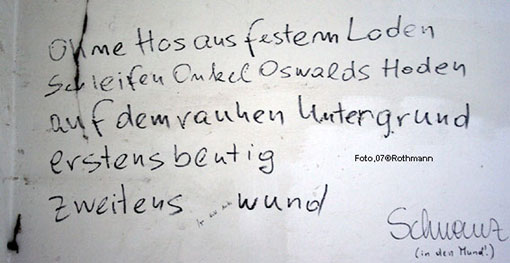 Ohne Hos aus festem Loden
Schleifen Onkel Oswalds Hoden
auf dem rauhen Untergrund
erstens beutig
Foto,07©Rothmann
zweitens wund
Schwanz
(in den Mund!)